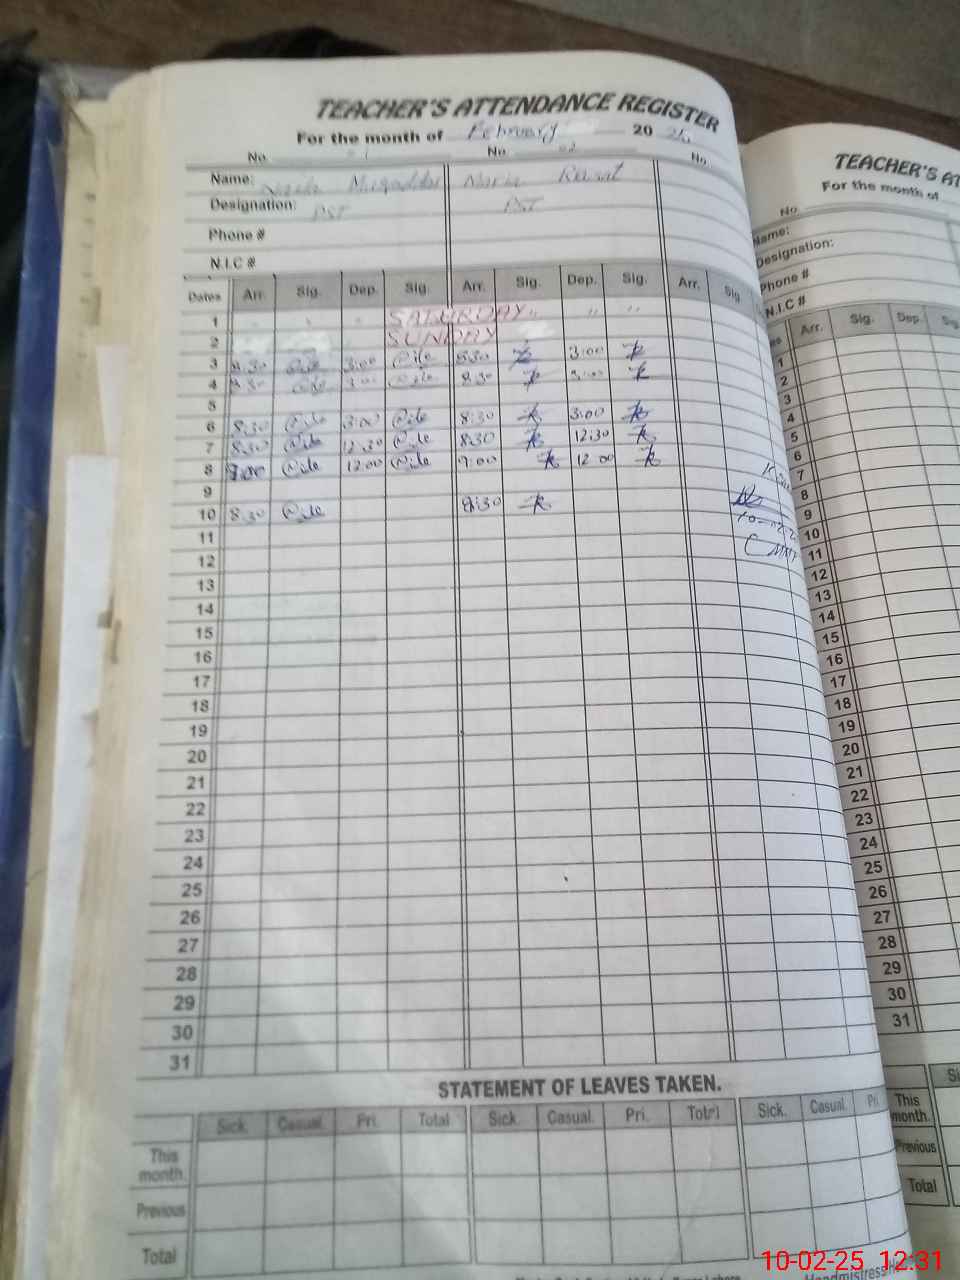 TEACHER'S ATTENDANCE REGISTER
For the month of February 20 25
No. 01 No. 02 No.
Name: Muqaddas Maria
Designation: PST PST
Phone #
N.I.C #
Dates Arr. Sig. Dep. Sig. Arr. Sig. Dep. Sig. Arr. Sig.
1 SATURDAY " " "
2 SUNDAY
3 8:30 3:00 8:30 3:00
4 8:30 3:00 8:30 3:00
5
6 8:30 3:00 8:30 3:00
7 8:30 12:30 8:30 12:30
8 9:00 12:00 9:00 12:00
9
10 8:30 8:30
11
12
13
14
15
16
17
18
19
20
21
22
23
24
25
26
27
28
29
30
31
STATEMENT OF LEAVES TAKEN.
Sick. Casual. Pri. Total Sick. Casual. Pri. Total Sick. Casual. Pri
This month.
Previous
Total
TEACHER'S AT
For the month of
No
Name:
Designation:
Phone #
N.I.C #
Arr. Sig. Dep.
1
2
3
4
5
6
7
8
9
10
11
12
13
14
15
16
17
18
19
20
21
22
23
24
25
26
27
28
29
30
31
This month.
Previous
Total
10-02-25 12:31